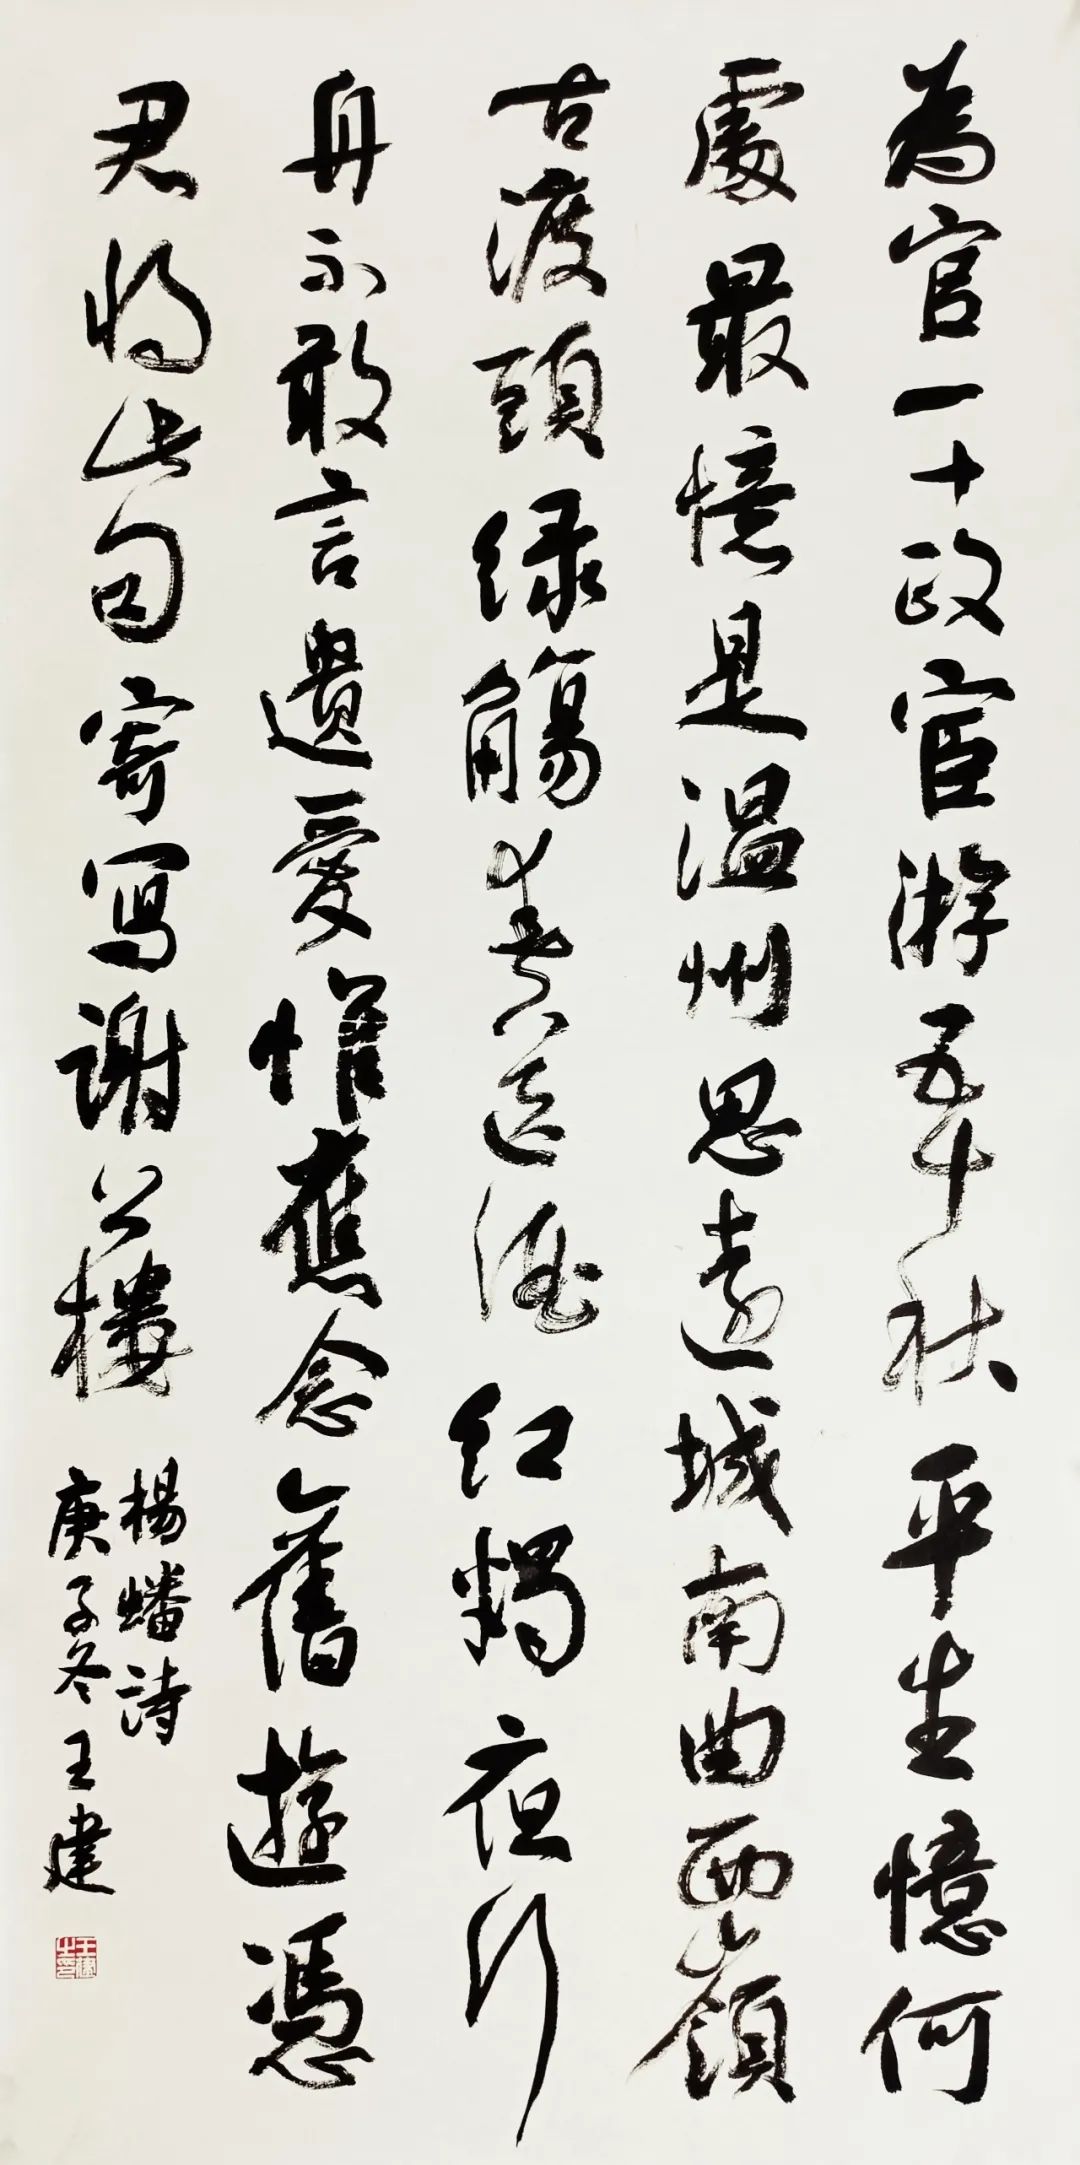 為官一十政宦游五十秋平生憶何
處最憶是温州思遠城南曲西嶺
古渡頭绿觴春送酒红燭夜行
舟不敢言遺愛惟應念舊遊憑
君將此句寄寫謝公樓
楊蟠詩
庚子冬王建
王建之印